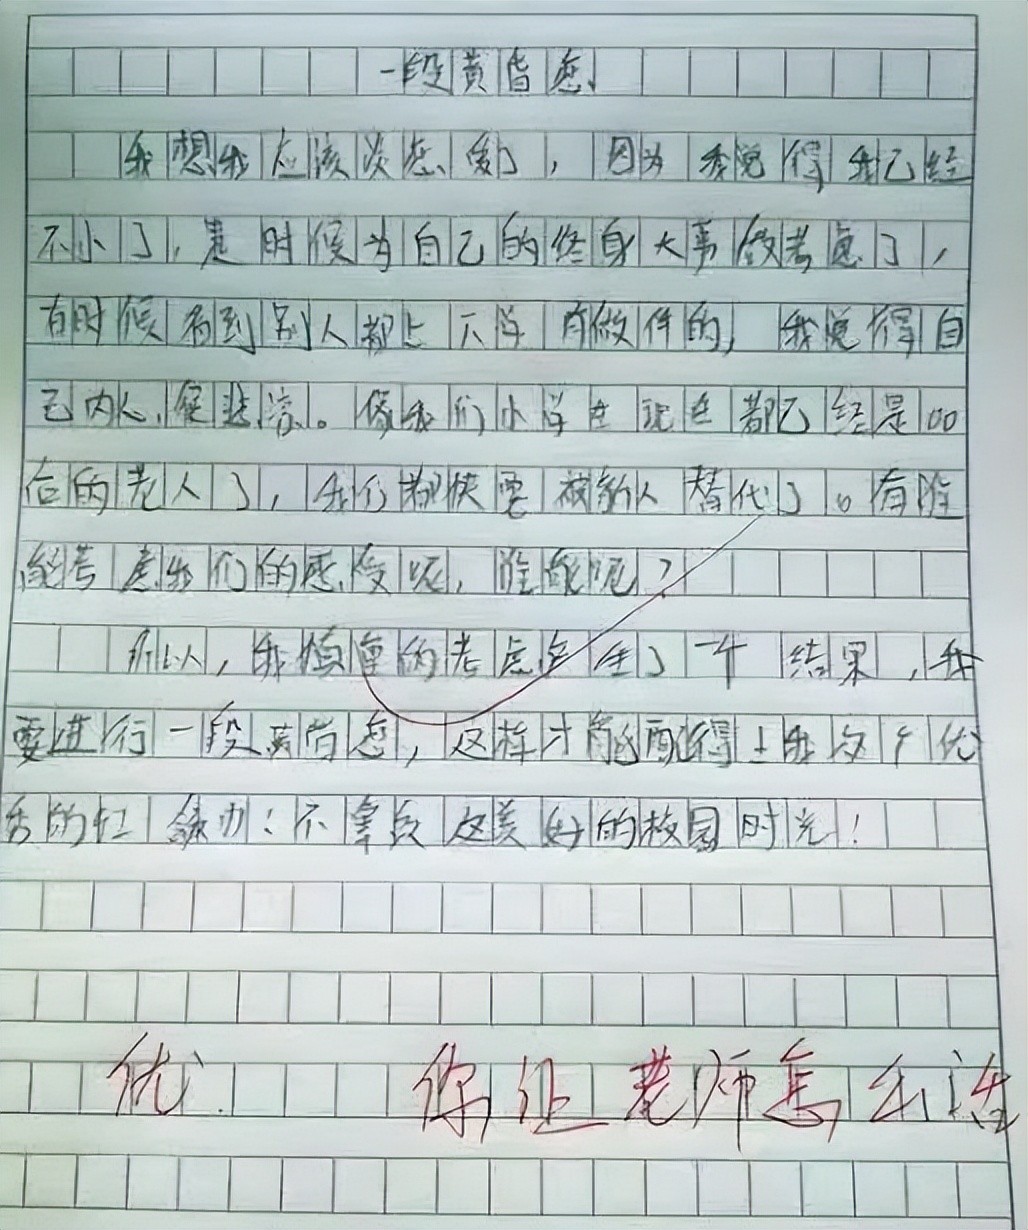 一段黄昏恋
我想我应该谈恋爱了，因为我觉得我已经
不小了，是时候为自己的终身大事做考虑了，
有时候看到别人都上下学有做伴的，我觉得自
己内心很悲凉。像我们小学生现在都已经是00
后的老人了，我们都快要被新人替代了。有谁
能考虑我们的感受呢，谁能呢？
所以，我慎重的考虑产生了一个结果，我
要进行一段黄昏恋，这样才能配得上我这个优
秀的红领巾！不辜负这美好的校园时光！
优
你让老师怎么活